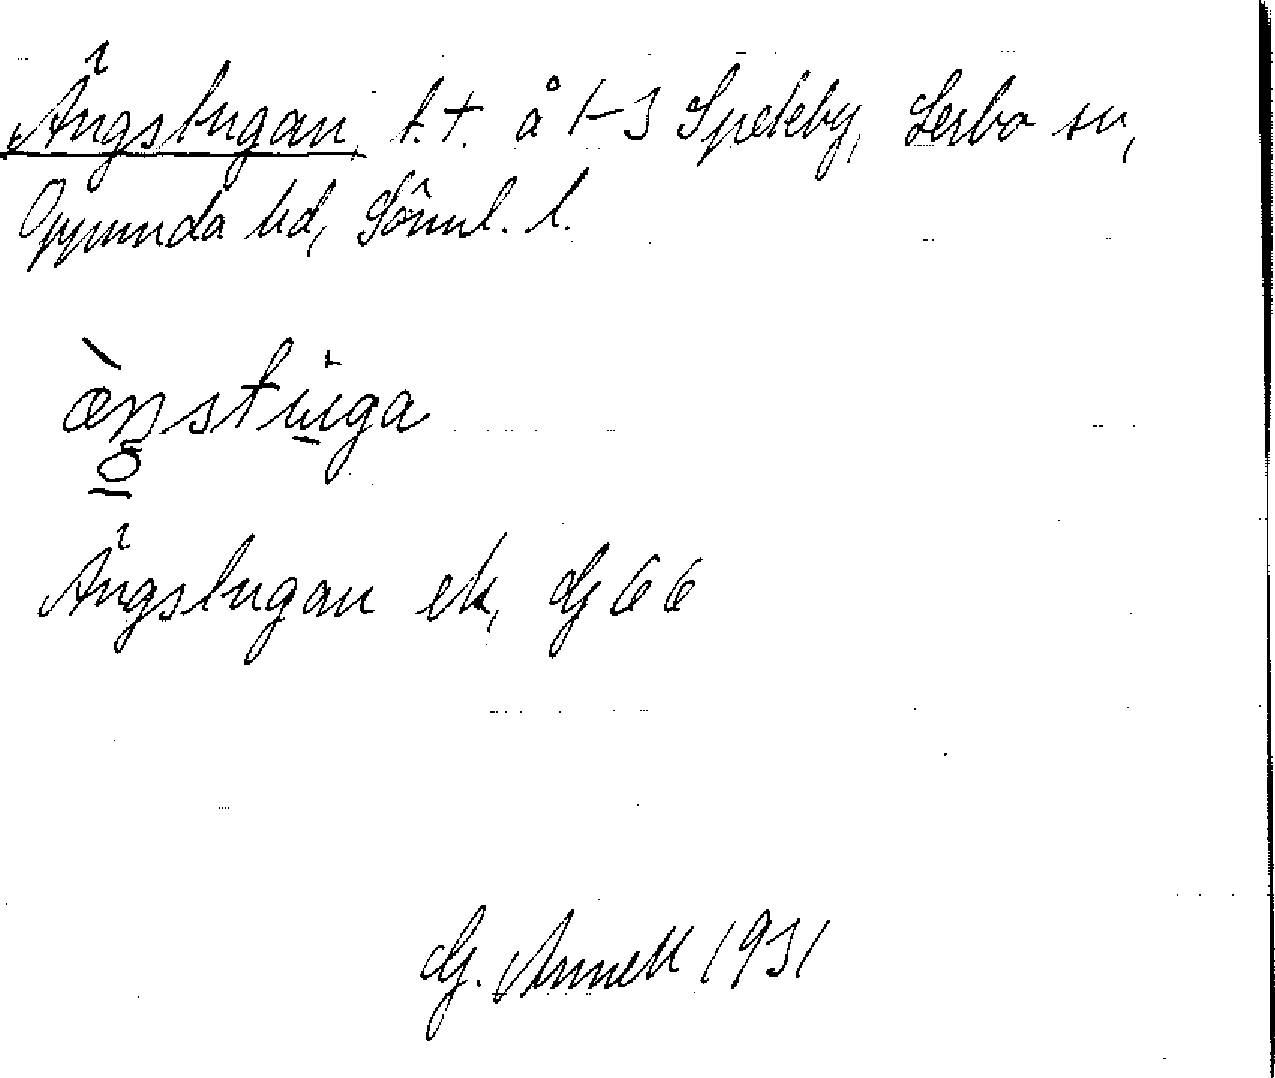 Ängstugan, t.t. å 1-3 Spekeby, Lerbo sn,
Oppunda hd, Sörml. l.
æŋstùga
Ängstugan ek, G 66
G. Annell 1931